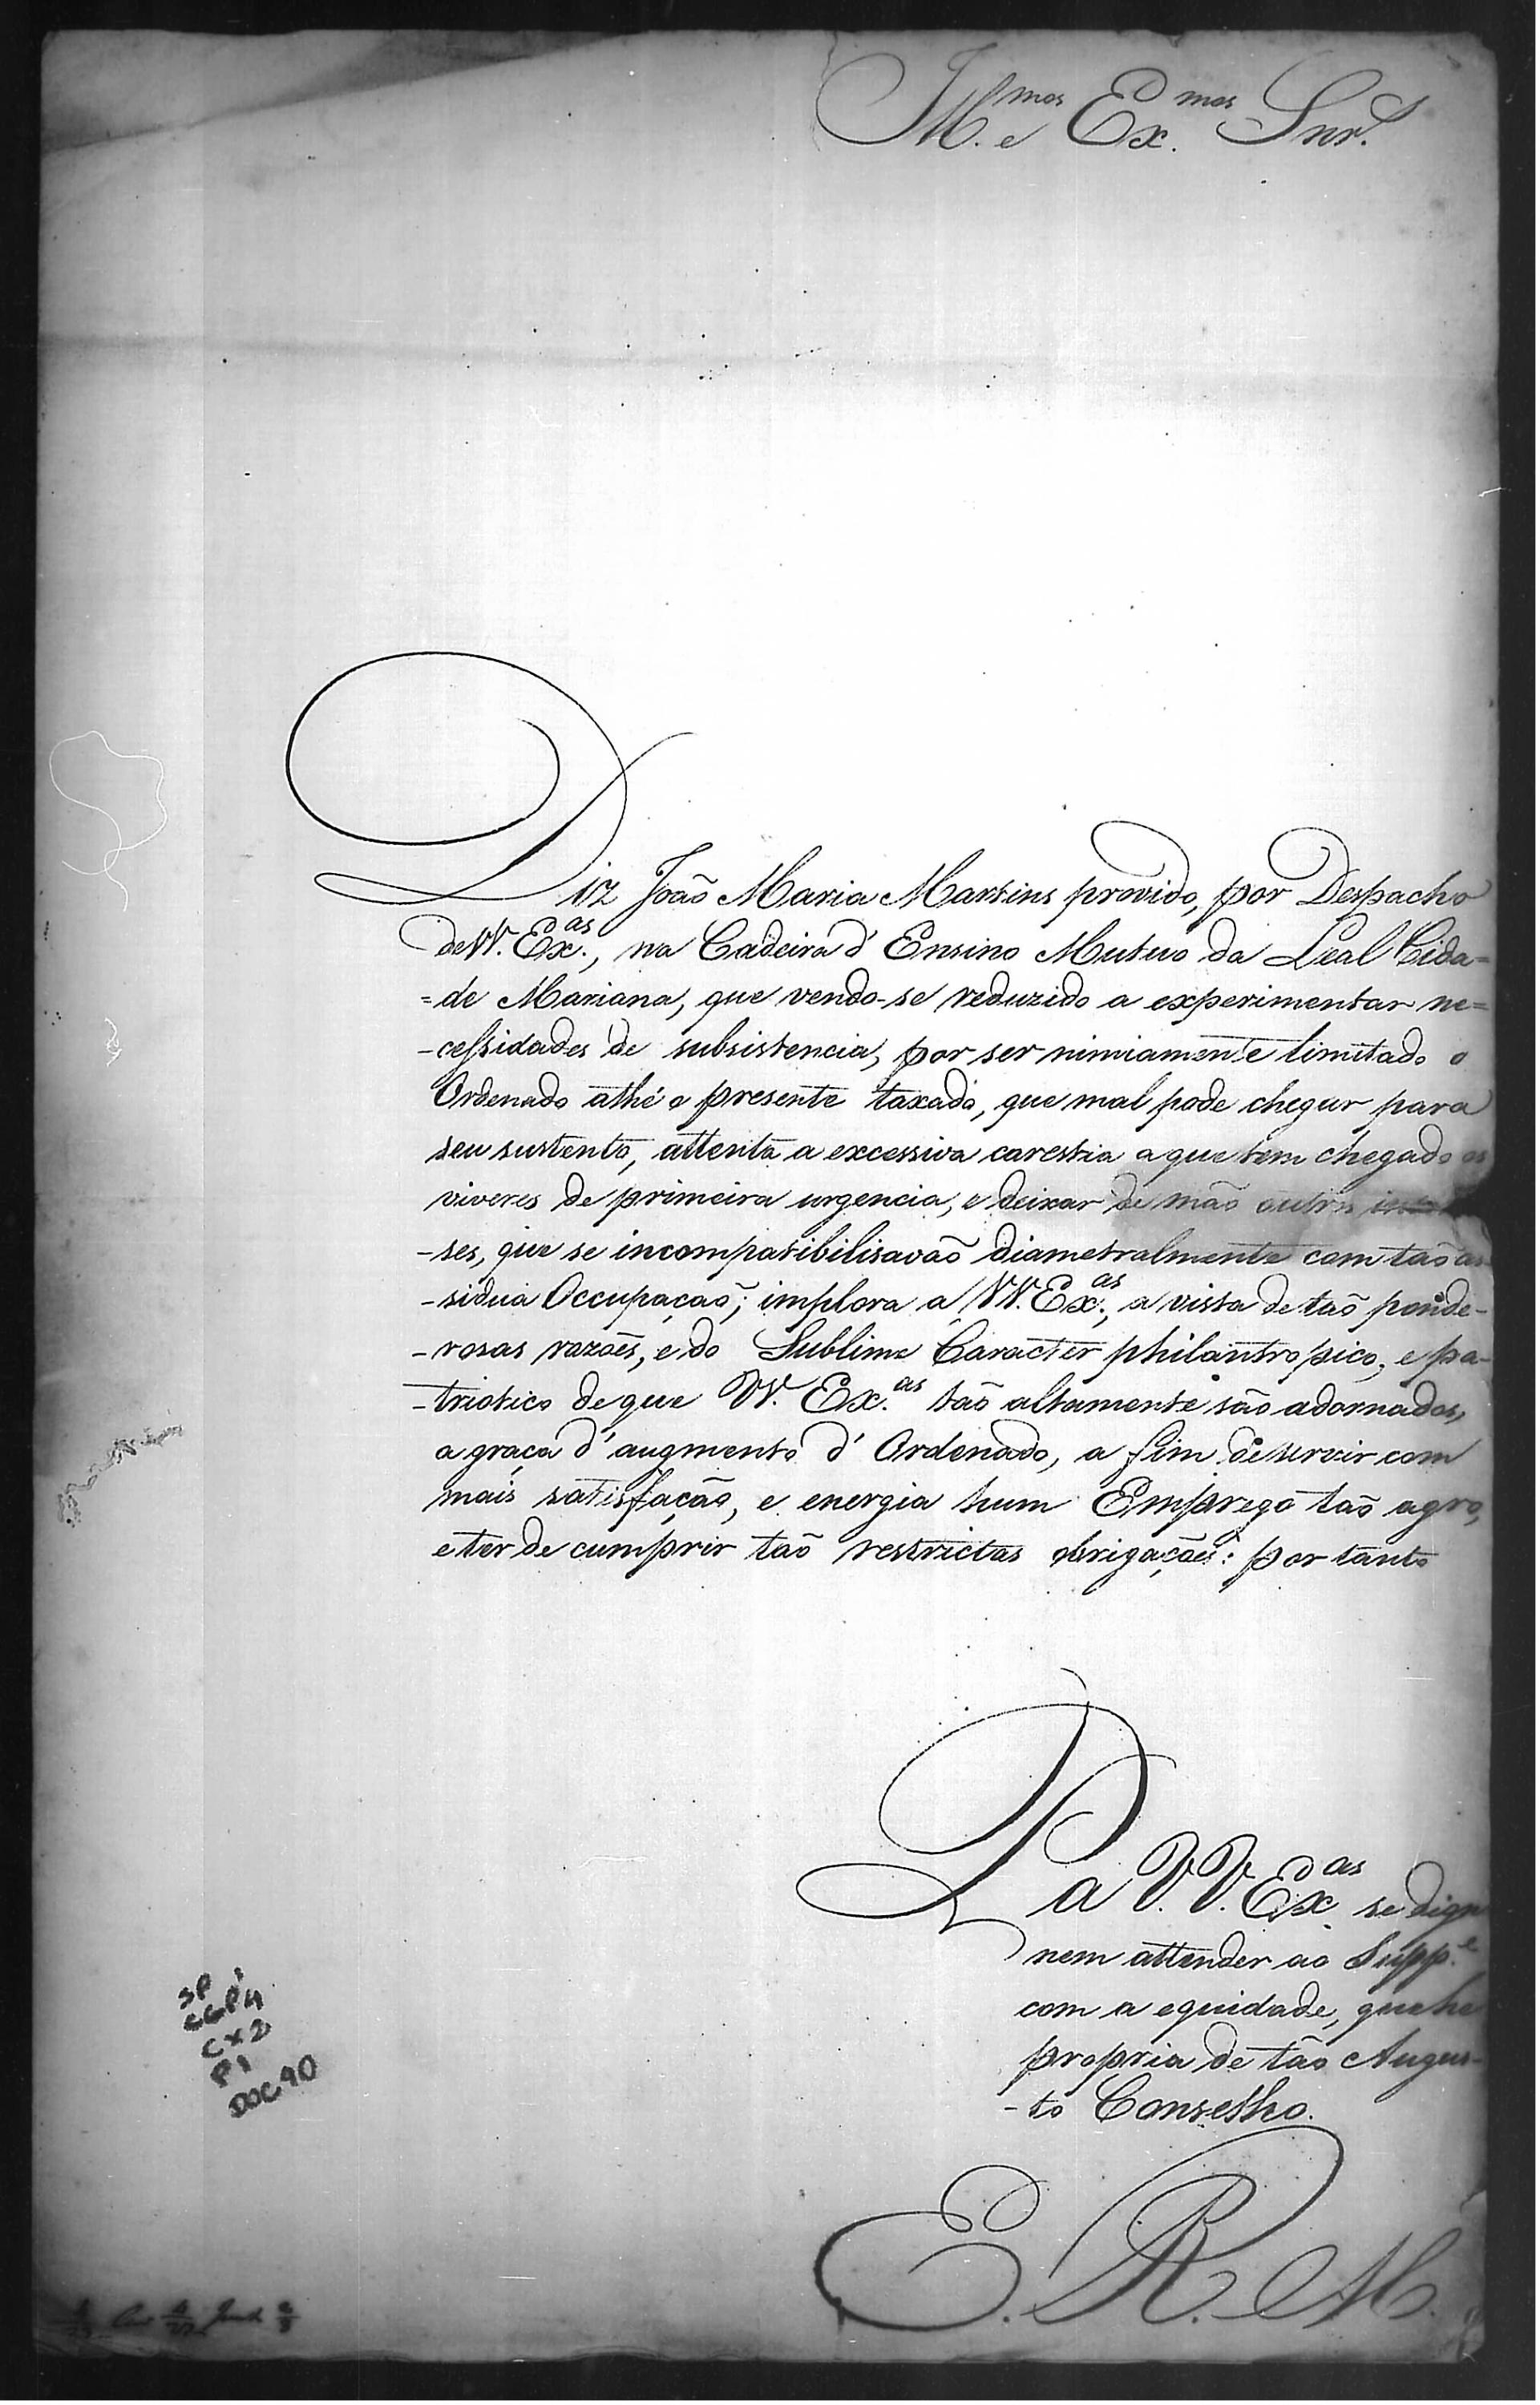 Ill.mos e Ex.mos Snr.s
Diz João Maria Martins provido, por Despacho
de VV. Ex.as, na Cadeira d' Ensino Mutuo da Leal Cida=
=de Mariana, que vendo-se reduzido a experimentar ne=
-cessidades de subsistencia, por ser nimiamente limitado o
Ordenado athé o presente taxado, que mal pode chegar para
seu sustento, attenta a excessiva carestia a que tem chegado os
viveres de primeira urgencia, e deixar de mão outros
-ses, que se incompatibilisavão diametralmente com tão as
-sidua Occupação; implora a VV. Ex.as, a vista de tão ponde-
-rosas razões, e do Sublime Caracter philantropico, e pa-
-triotico de que VV. Ex.as tão altamente são adornados,
a graça d' augmento d' Ordenado, a fim de servir com
mais satisfação, e energia hum Emprego tão agro,
e ter de cumprir tão restrictas obrigações: por tanto
P. a V.V. Ex.as se dig
nem attender ao Supp.e
com a equidade, que he
propria de tão Augus-
-to Conselho.
E. R. M.
SP
CGP4
CX2
P1
DOC90